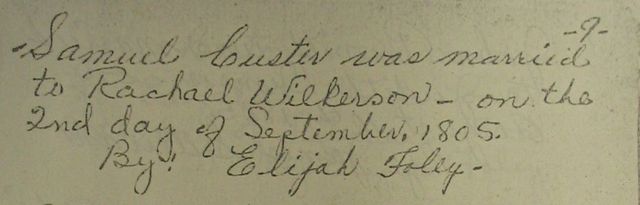 -9-
Samuel Custer was married
to Rachael Wilkerson - on the
2nd day of September, 1805.
By: Elijah Foley -